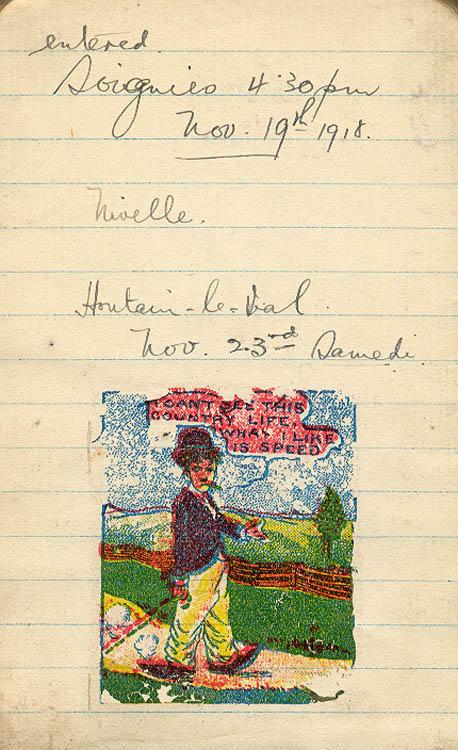 entered.
Soignies 4.30 pm
Nov. 19th 1918.
Nivelle.
Houtain-le-Val.
Nov. 23rd Samedi
I CAN'T SEE THIS
COUNTRY LIFE,
WHAT I LIKE
IS SPEED